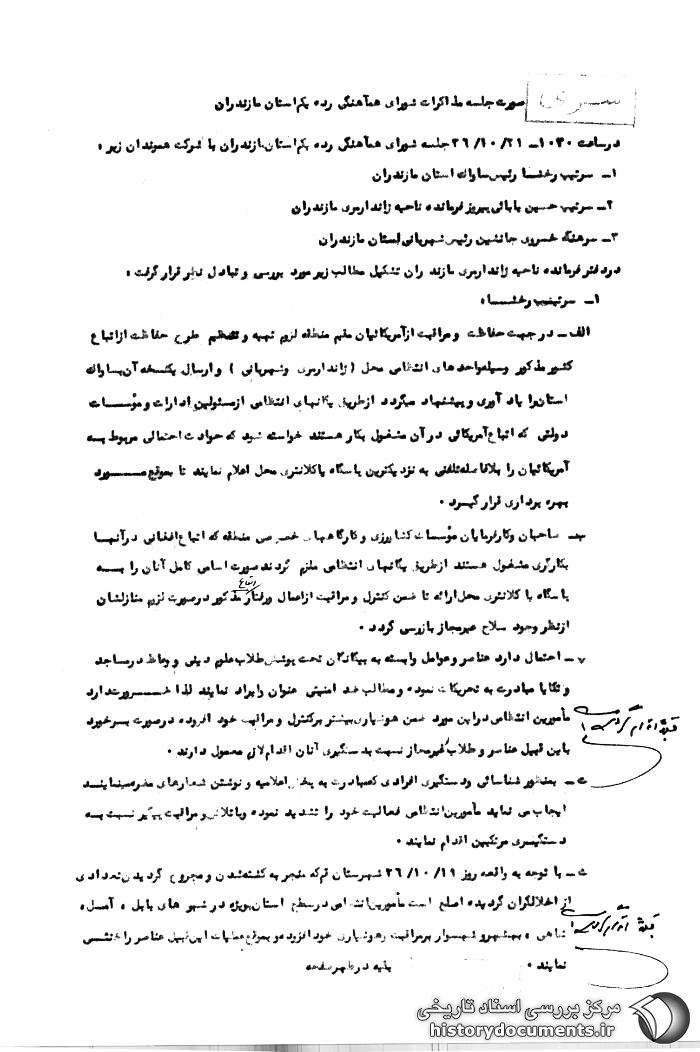 سری
صورت جلسه مذاکرات شورای همآهنگی رده یکم استان مازندران
در ساعت ۱۰۳۰ـ ۳۶/۱۰/۲۱ جلسه شورای همآهنگی رده یکم استان مازندران با شرکت هموندان زیر :
۱ـ سرتیپ رخشا رئیس ساواک استان مازندران
۲ـ سرتیپ حسین بابائی پیروز فرمانده ناحیه ژاندارمری مازندران
۳ـ سرهنگ خسروی جانشین رئیس شهربانی استان مازندران
در دفتر فرمانده ناحیه ژاندارمری مازندران تشکیل مطالب زیر مورد بررسی و تبادل نظر قرار گرفت :
۱ـ سرتیپ رخشا :
الف ـ در جهت حفاظت و مراقبت از آمریکائیان مقیم منطقه لزوم تهیه و تنظیم طرح حفاظت از اتباع
کشور مذکور وسیله واحدهای انتظامی محل (ژاندارمری و شهربانی ) و ارسال یکنسخه آن بساواک
استان را یاد آوری و پیشنهاد میگردد از طریق یگانهای انتظامی از مسئولین ادارات و مؤسسات
دولتی که اتباع آمریکائی در آن مشغول بکار هستند خواسته شود که حوادث احتمالی مربوط به
آمریکائیان را بلافاصله تلفنی به نزدیکترین پاسگاه یا کلانتری محل اعلام نمایند تا بموقع مورد
بهره برداری قرار گیرد .
ب ـ صاحبان و کارفرمایان مؤسسات کشاورزی و کارگاههای خصوصی منطقه که اتباع افغانی در آنها
بکارگری مشغول هستند از طریق یگانهای انتظامی ملزم گردند صورت اسامی کامل آنان را به
پاسگاه یا کلانتری محل ارائه تا ضمن کنترل و مراقبت از اعمال و رفتار اتباع مذکور در صورت لزوم منازلشان
از نظر وجود سلاح غیرمجاز بازرسی گردد .
احتمال دارد عناصر و عوامل وابسته به بیگانگان تحت پوشش طلاب علوم دینی و وعاظ در مساجد
و تکایا مبادرت به تحریکات نموده و مطالب ضد امنیتی عنوان و ایراد نمایند لذا ضرورت دارد
مأمورین انتظامی در این مورد ضمن هوشیاری بیشتر بر کنترل و مراقبت خود افزوده در صورت برخورد
با این قبیل عناصر و طلاب غیرمجاز نسبت به دستگیری آنان اقدام لازم معمول دارند .
بمنظور شناسائی و دستگیری افرادی که مبادرت به پخش اعلامیه و نوشتن شعارهای مضره مینمایند
ایجاب می نماید مأمورین انتظامی فعالیت خود را تشدید نموده و با تلاش و مراقبت پیگیر نسبت به
دستگیری مرتکبین اقدام نمایند .
ـ با توجه به واقعه روز ۳۶/۱۰/۱۹ شهرستان قم که منجر به کشته شدن و مجروح گردیدن تعدادی
از اخلالگران گردیده اصلح است مأمورین انتظامی در سطح استان بویژه در شهرهای بابل ، آمل ،
شاهی ، بهشهر و شهسوار بر مراقبت و هوشیاری خود افزوده و بموقع عملیات این قبیل عناصر را خنثی
نمایند .
بقیه در ظهر صفحه
مرکز بررسی اسناد تاریخی
historydocuments.ir